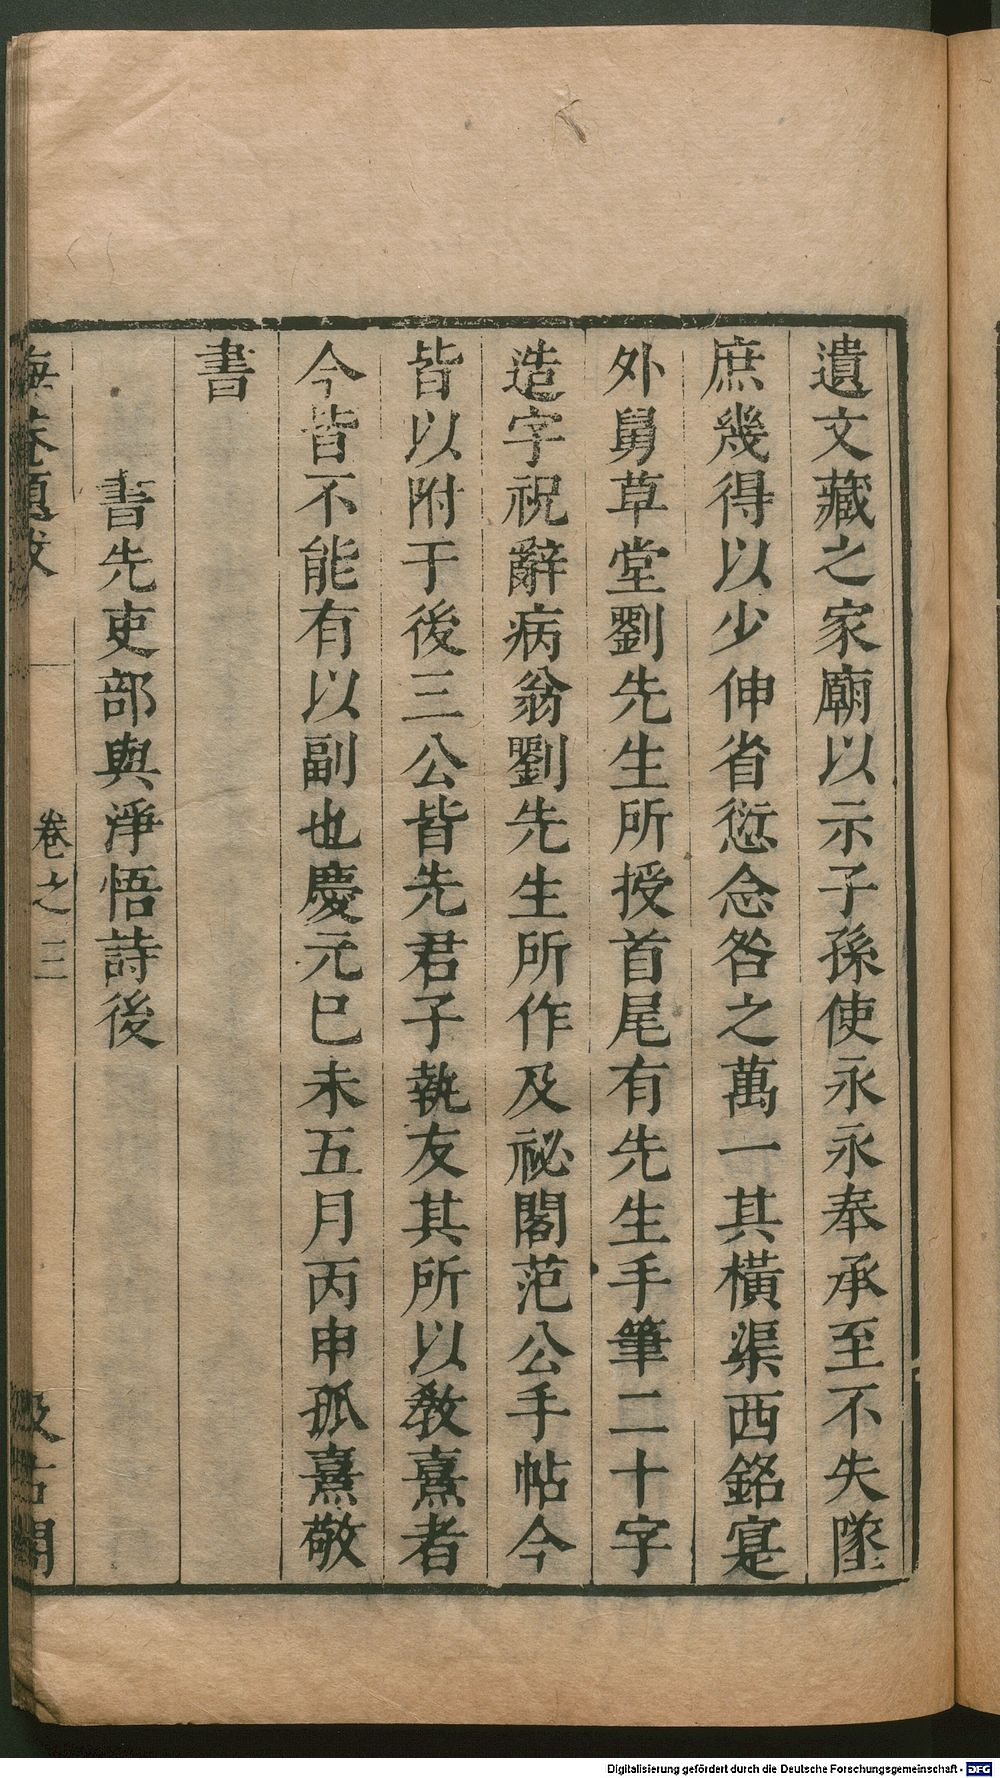 遺文藏之家廟以示子孫使永永奉承至不失墜
庶幾得以少伸省愆念咎之萬一其橫渠西銘寔
外舅草堂劉先生所授首尾有先生手筆二十字
造字祝辭病翁劉先生所作及祕閣范公手帖今
皆以附于後三公皆先君子執友其所以教熹者
今皆不能有以副也慶元巳未五月丙申孤熹敬
書
書先吏部與淨悟詩後
晦菴題跋
卷之三
汲古閣
Digitalisierung gefördert durch die Deutsche Forschungsgemeinschaft - DFG